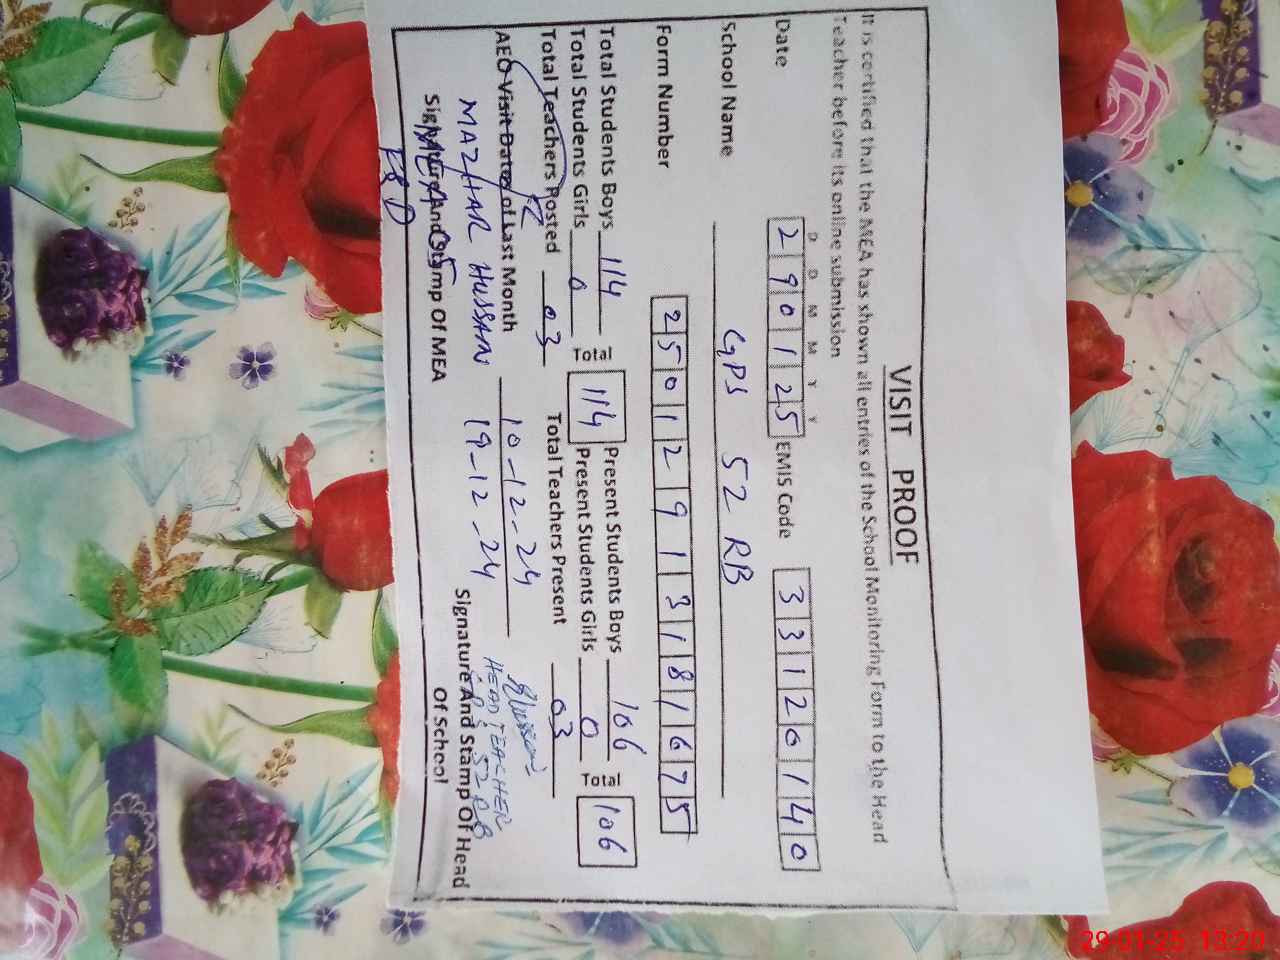 VISIT PROOF
It is certified that the MEA has shown all entries of the School Monitoring Form to the Head
Teacher before its online submission
D D M M Y Y
Date 290125 EMIS Code 33120140
School Name GPS 52 RB
Form Number 2501291318167 5
Total Students Boys 114 Present Students Boys 106
Total Students Girls 0 Total 114 Present Students Girls 0 Total 106
Total Teachers Posted 03 Total Teachers Present 03
AEO Visit Dates of Last Month 10-12-24
19-12-24
MAZHAR HUSSAN
HEAD TEACHER
GPS 52 RB
Signature And Stamp Of MEA Signature And Stamp Of Head
Of School
MEA 05
FSD
29-01-25 13:20